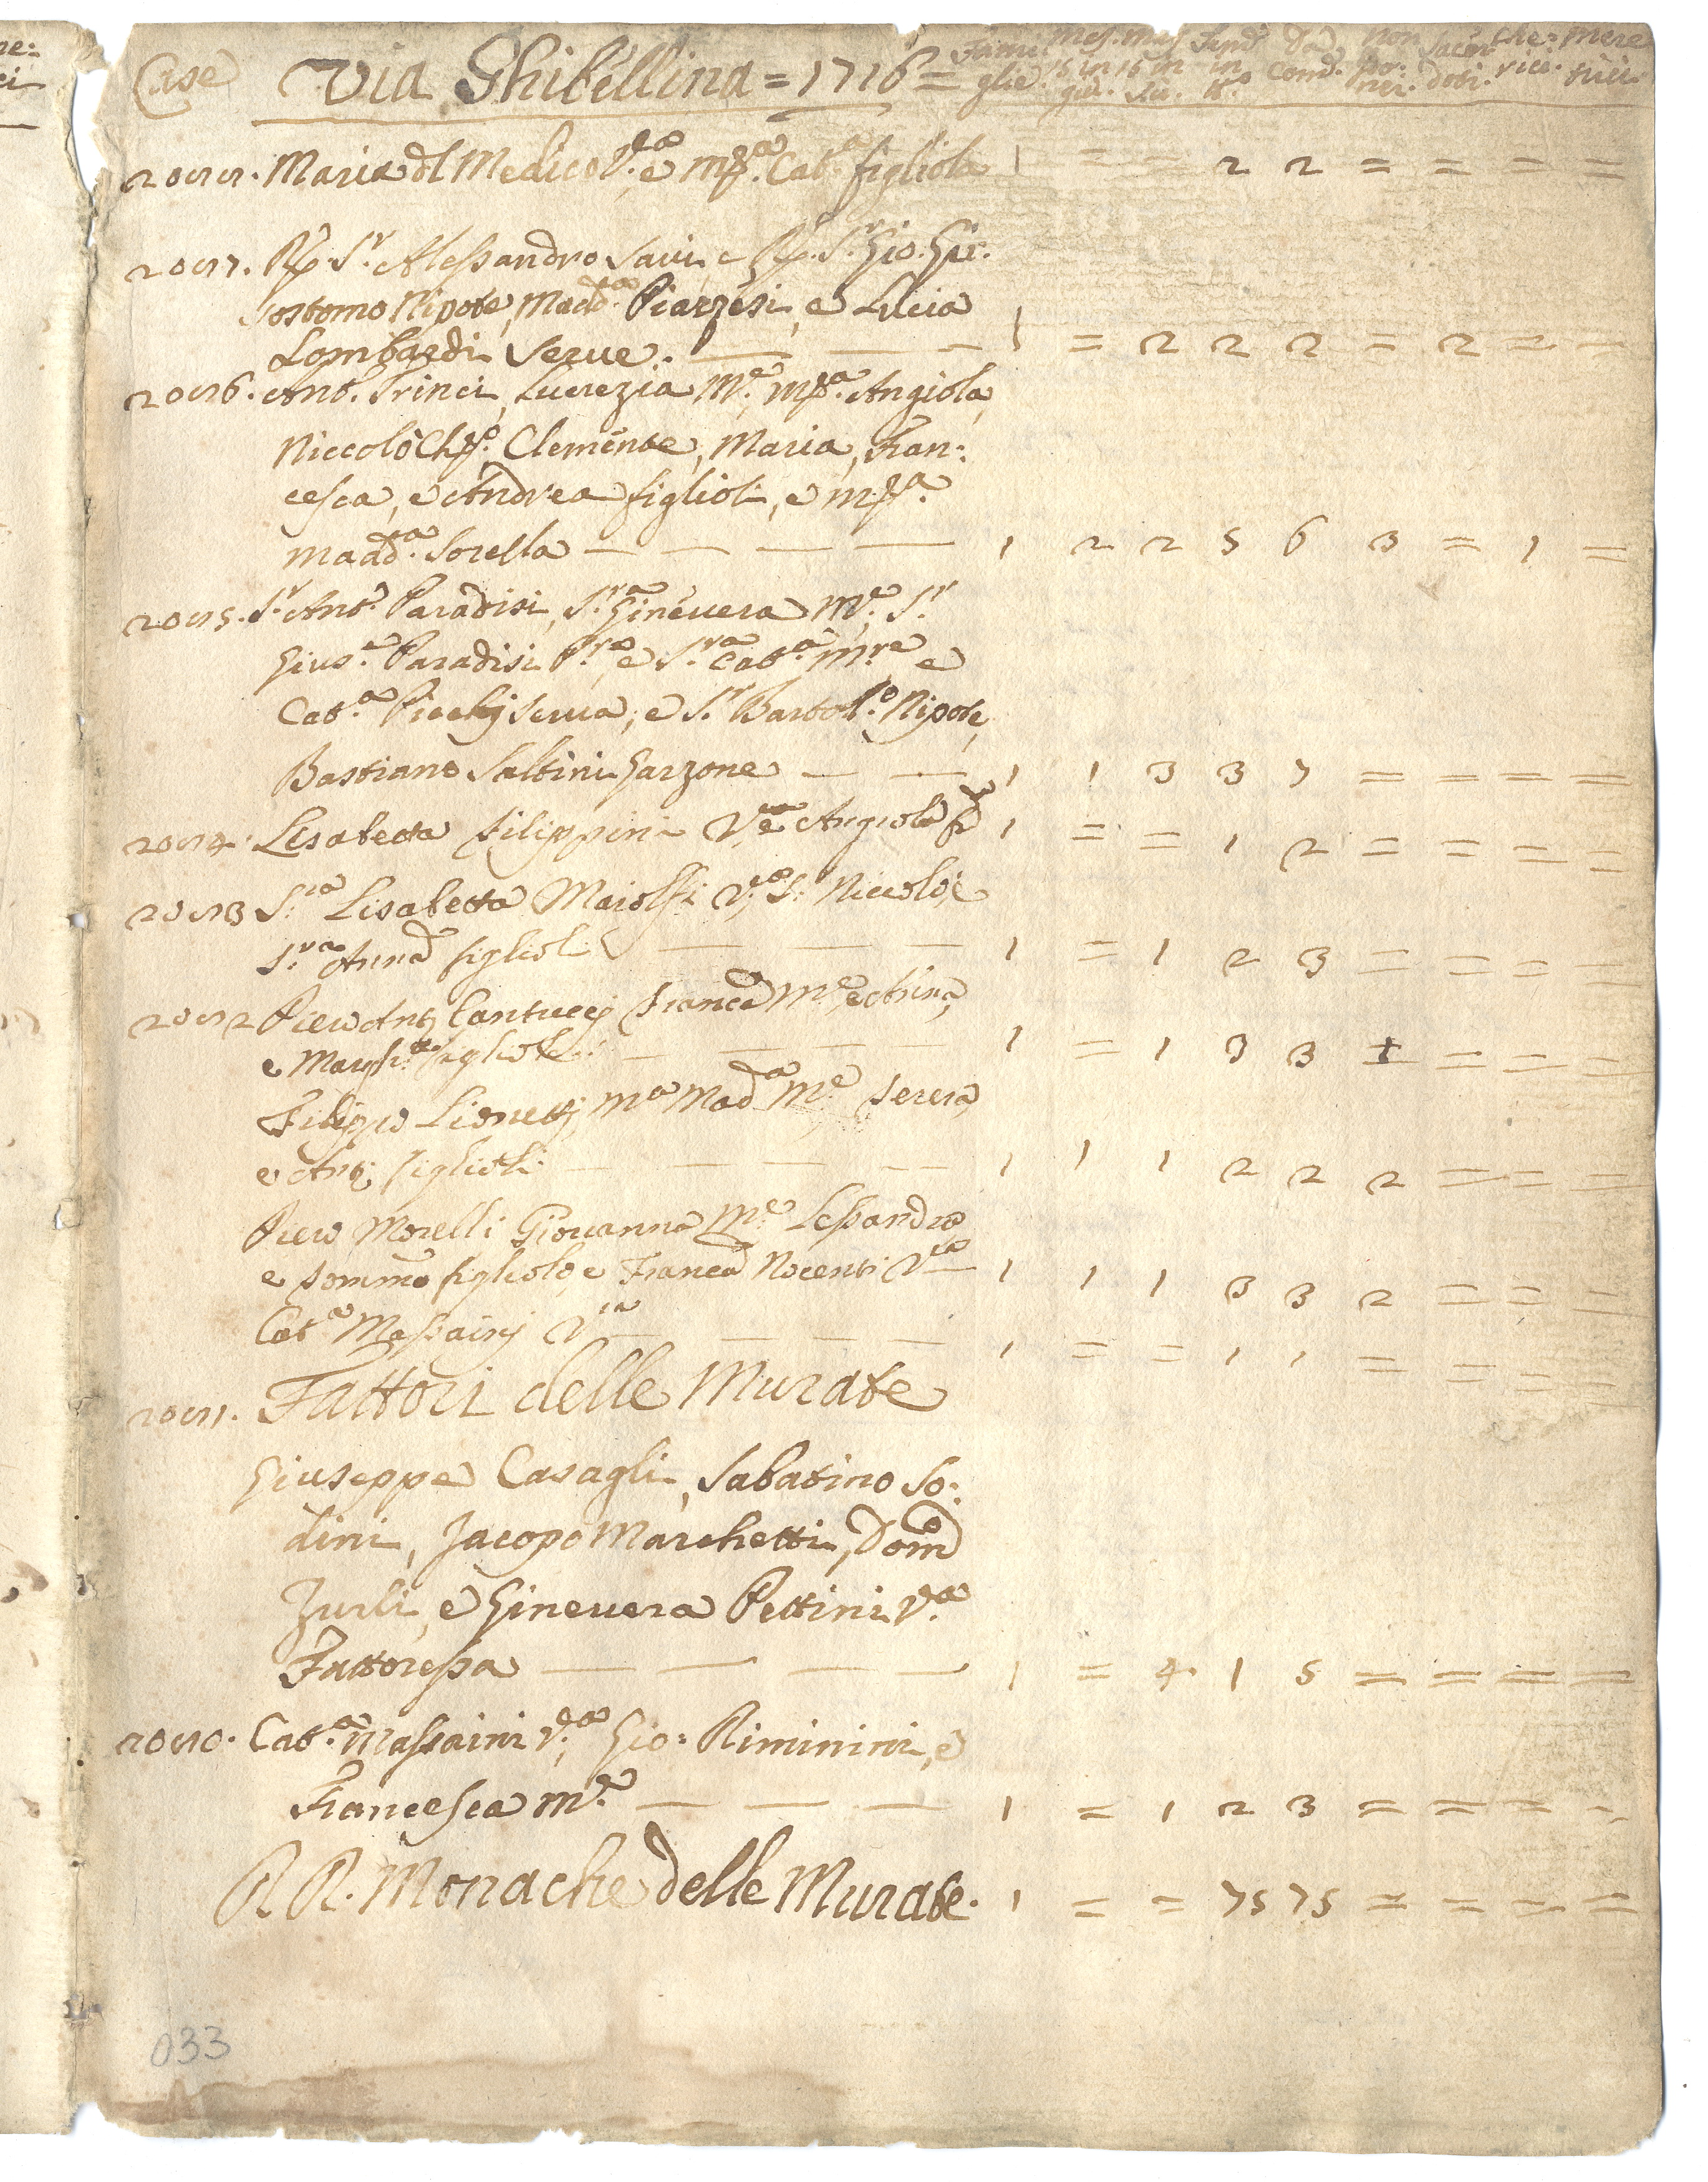 Case Via Ghibellina = 1716 = Fami: Mas. Mas. Fem: Da Non Sacer: Che= Mere
glie. 15 in 16 in in Com. Po. doti. rici. trici
giù. Su. ti. ner.
2022. Maria dl Medico V.a e M.a Cat.a figliola 1 = = 2 2 = = = =
2027. Rp. S.r Alessandro Savi, e Rp. S.r Gio. Gri:
sostomo Nipote, Madd.a Piazzesi, e Lucia
Lombardi Serve. — — - 1 = 2 2 2 = 2 = =
2026. Ant.o Trinci, Lucrezia M.e, M.a Angiola,
Niccolò Clemente, Maria, Fran:
cesca, e Andrea figlioli, e M.a
Madd.a Sorella — — — — 1 2 2 5 6 3 = 1 =
2025. S.r Ant.o Paradisi, S.ra Ginevera M.e, S.r
Gius.e Paradisi P.re e S.ra Cat.a M.re e
Cat.a Picchj Serva, e S.r Bartol.o Nipote,
Bastiano Saltini Garzone — — 1 1 3 3 7 = = = =
2024. Lisabetta Filippini V.a e Angiola f.a 1 = = 1 2 = = = =
2023 S.ra Lisabetta Maiolfi V.a S.r Niccolò, e
S.ra Anna figlioli — — — 1 = 1 2 3 = = = =
2022 Piero Ant.o Cantuccj Franc.a M.e, e Anna,
e Margh.ta figliole: — — — — 1 = 1 3 3 1 = = =
Filippo Lionettj, M.a Mad.a M.e, Teresa,
e Ant.o figlioli. — — — — 1 1 1 2 2 2 = = =
Piero Morelli Giovanna M.e Lessandro
e Tommaso figliolo, e Franca Nocenti V.a — 1 1 1 3 3 2 = = =
Cat.a Massainj V.a — — — — 1 = = 1 1 = = = =
2021. Fattori delle Murate
Giuseppe Casagli, Sabatino So:
dini, Jacopo Marchetti, Dom.o
Zurli, e Ginevera Pettini V.a
Fattoressa — — — — 1 = 4. 1 5 = = = =
2020. Cat.a Massaini V.a, Gio: Riminini, e
Francesca M.e — — — 1 = 1 2 3 = = = =
RR. Monache delle Murate. 1 = = 75 75 = = = =
033